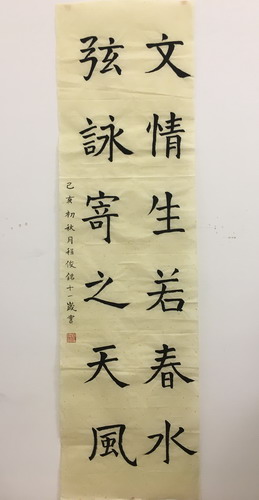 文情生若春水
弦詠寄之天風
己亥初秋月程俊銘十一歲書